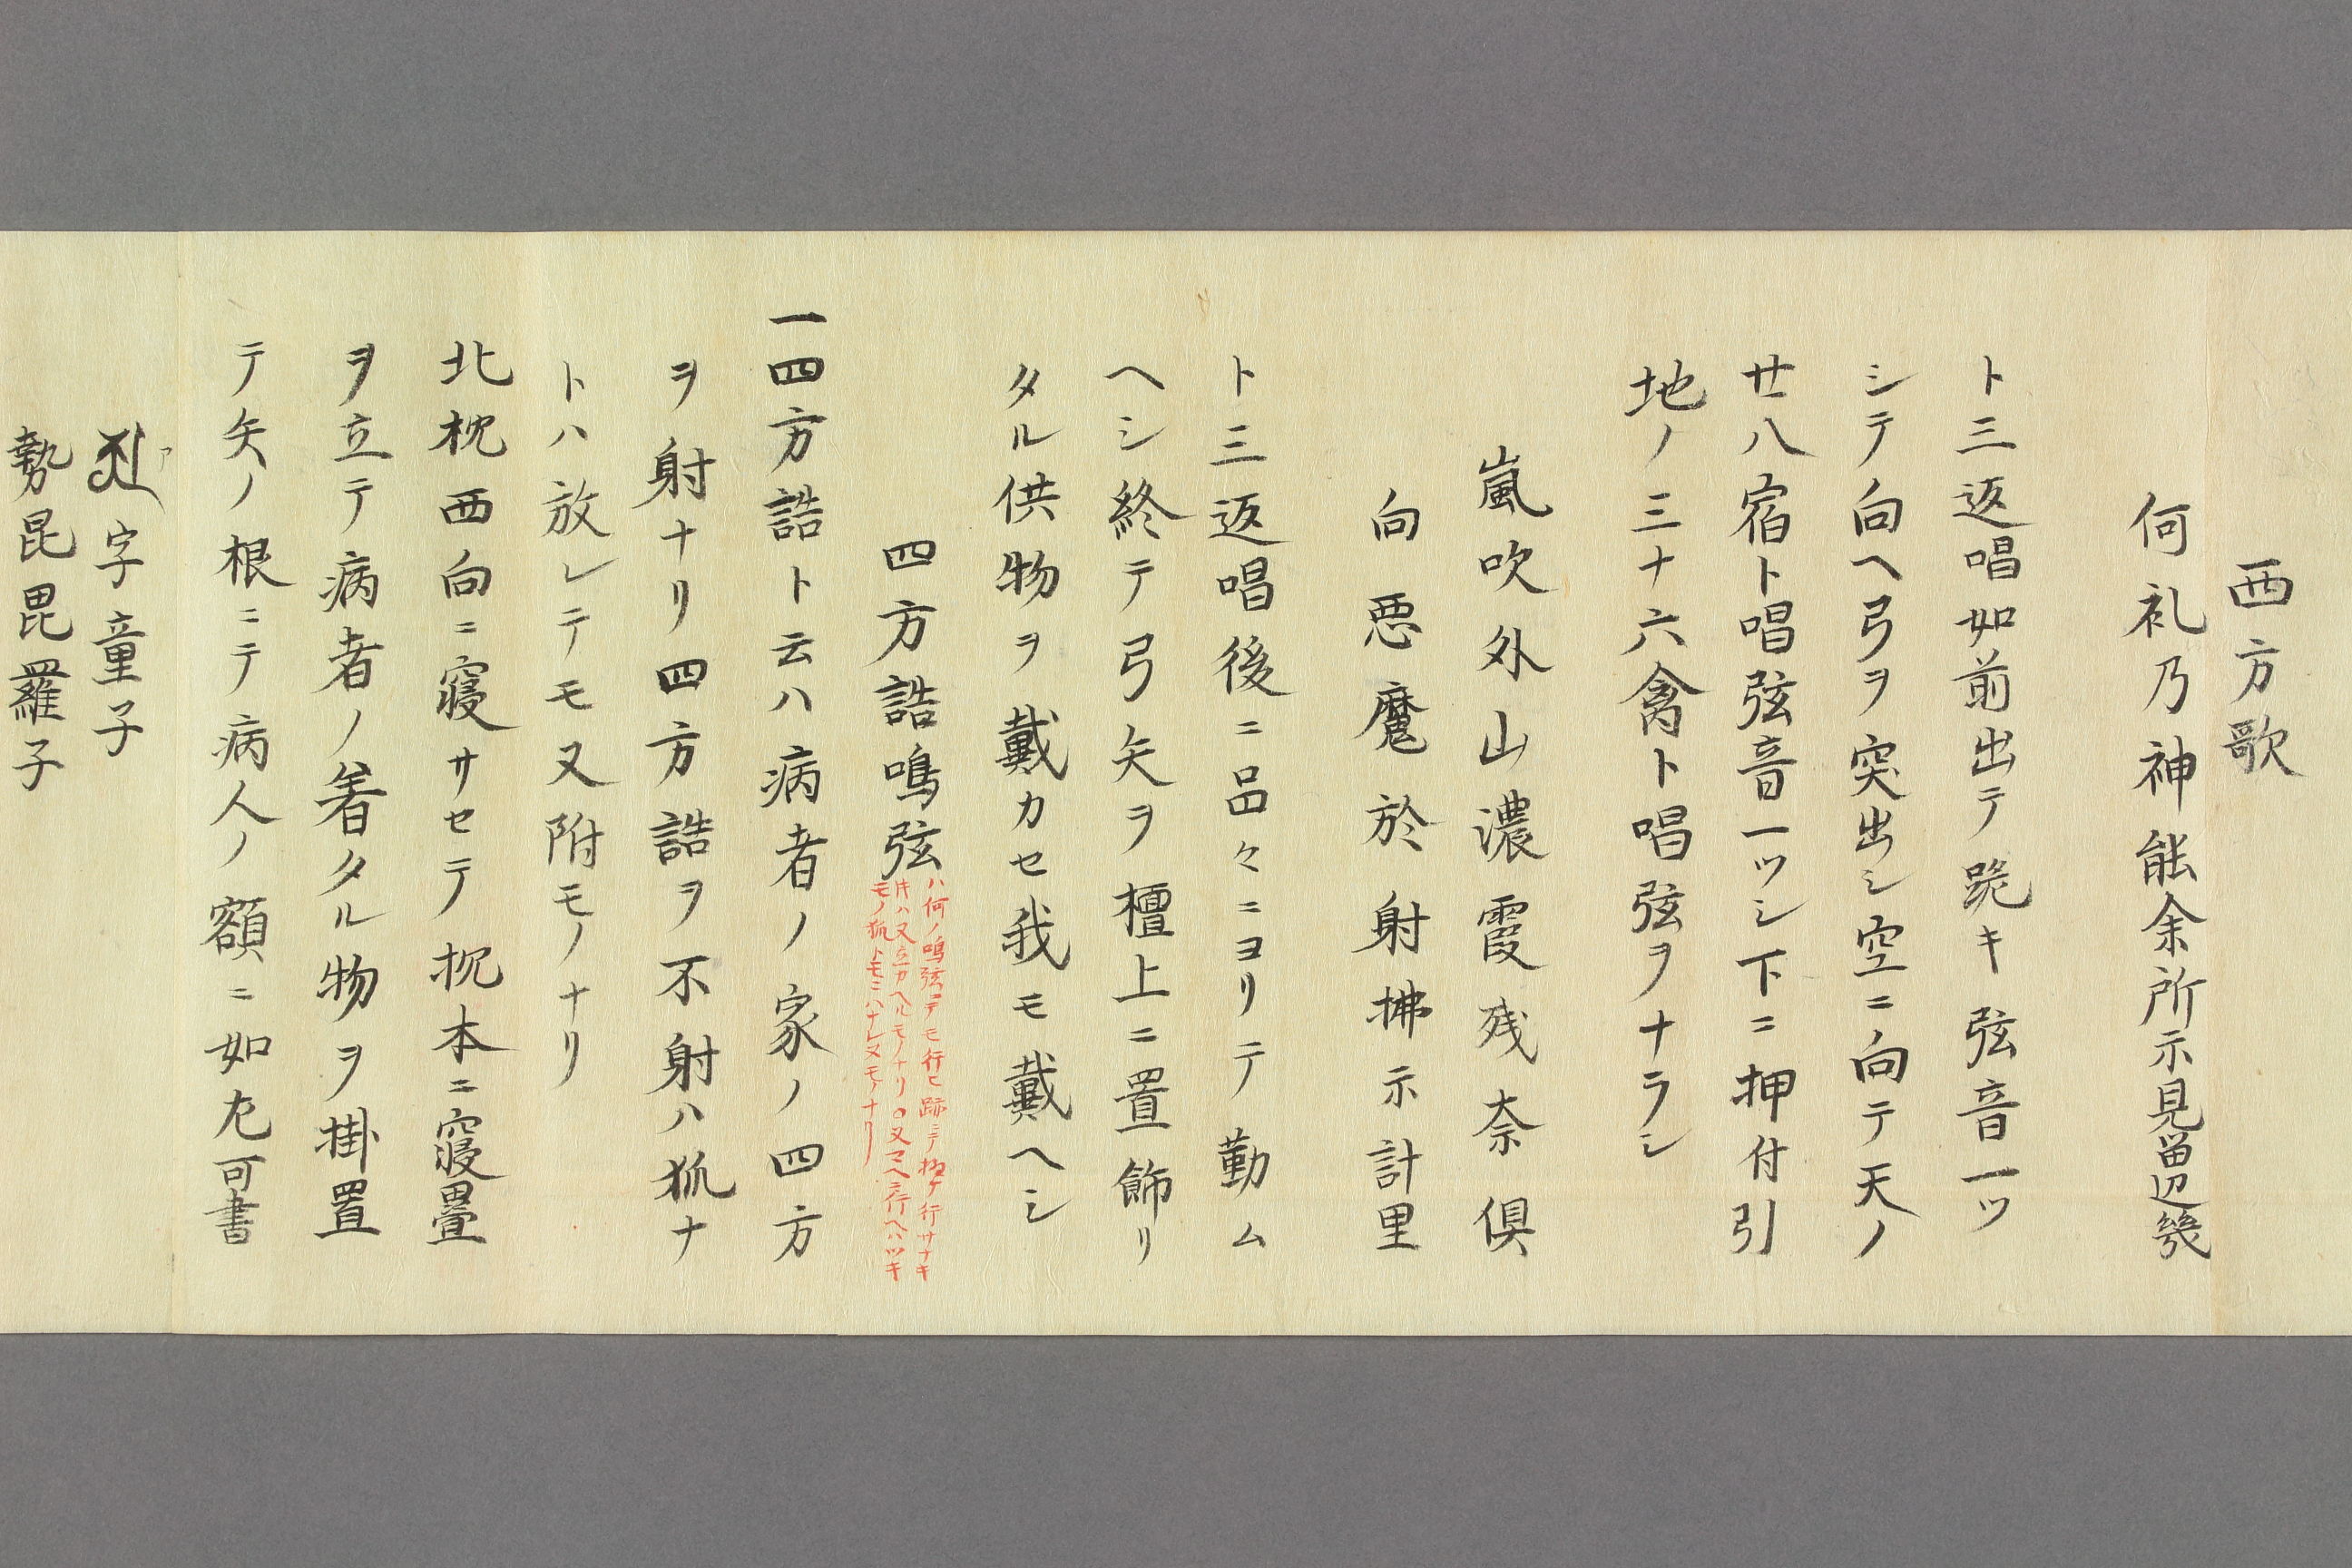 西方歌
何礼乃神能余所示見留辺幾
ト三返唱如前出テ跪キ弦音一ツ
シテ向ヘ弓ヲ突出シ空ニ向テ天ノ
廿八宿ト唱弦音一ツシ下ニ押付引
地ノ三十六禽ト唱弦ヲナラシ
嵐吹外山濃霞残奈俱
向悪魔於射拂示計里
ト三返唱後ニ品々ニヨリテ勤ム
ヘシ終テ弓矢ヲ檀上ニ置飾リ
タル供物ヲ戴カセ我モ戴ヘシ
四方誥鳴弦
ハ何ノ鳴弦ニテモ行ヒ跡ニテ極テ行サナキ
キハ又立カヘルモノナリ○又マヘニ行ヘハツキ
モノ狐トモニハナレヌモノナリ
一四方誥ト云ハ病者ノ家ノ四方
ヲ射ナリ四方誥ヲ不射ハ狐ナ
トハ放レテモ又附モノナリ
北枕西向ニ寝サセテ枕本ニ寝畳
ヲ立テ病者ノ着タル物ヲ掛置
テ矢ノ根ニテ病人ノ額ニ如左可書
ア
字童子
勢昆毘羅子